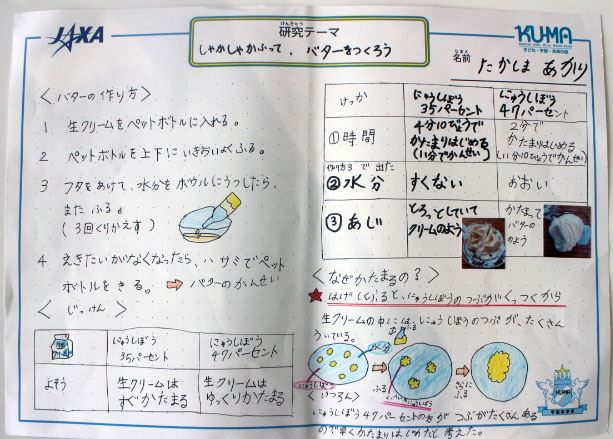 JAXA
けんきゅう
研究テーマ
しゃかしゃかふって、バターをつくろう
KU-MA
子ども・宇宙・未来の会
なまえ
名前 たかしま あかり
〈バターの作り方〉
1 生クリームをペットボトルに入れる。
2 ペットボトルを上下にいきおいよくふる。
3 フタをあけて、水分をボウルにうつしたら、
またふる。
(3回くりかえす)
4 えきたいがなくなったら、ハサミでペット
ボトルをきる。⇨ バターのかんせい
〈じっけん〉
にゅうしぼう
35パーセント
にゅうしぼう
47パーセント
よそう
生クリームは
すぐかたまる
生クリームは
ゆっくりかたまる
けっか
にゅうしぼう
35パーセント
にゅうしぼう
47パーセント
①時間
4分10びょうで
かたまりはじめる
(11分でかんせい)
2分で
かたまりはじめる
(11分10びょうでかんせい)
作り方3で出た
②水分
すくない
おおい
③あじ
とろっとしていて
クリームのよう
かたまって
バターの
よう
〈なぜかたまるの?〉
★はげしくふると、にゅうしぼうのつぶがくっつくから
生クリームの中には、にゅうしぼうのつぶが、たくさん
ういている。
水分
にゅうしぼう
ふる
さらに
ふる
〈けつろん〉
にゅうしぼう47パーセントの方がつぶがたくさんある
ので早くかたまりはじめたと考えた。
KU-MA
宇宙の学校